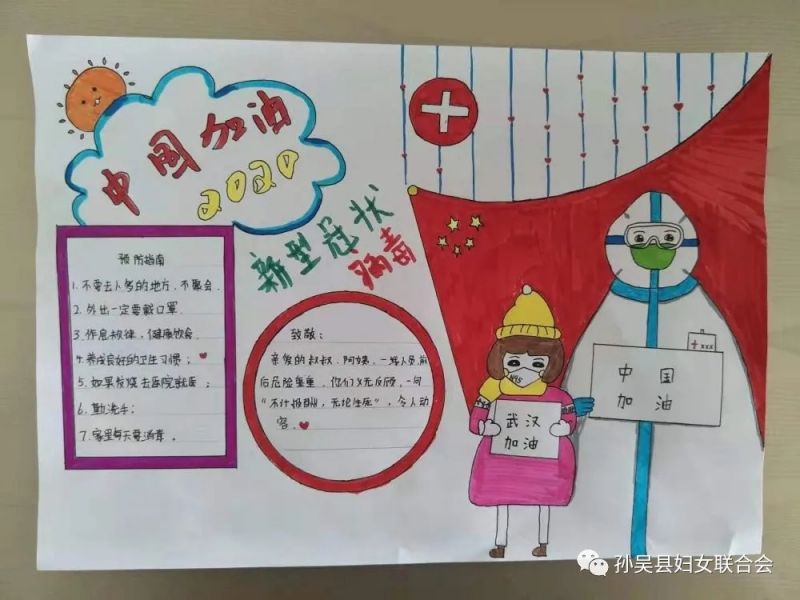 中国加油
2020
新型冠状
病毒
预防指南
1.不要去人多的地方,不聚会.
2.外出一定要戴口罩.
3.作息规律,健康饮食.
4.养成良好的卫生习惯;
5.如果发烧去医院就医;
6.勤洗手;
7.家里每天要消毒。
致敬:
亲爱的叔叔、阿姨,一线人员,前
后危险重重,你们义无反顾,一句
“不计报酬,无论生死”,令人动
容.
N95
武汉
加油
xxx
中国
加油
孙吴县妇女联合会